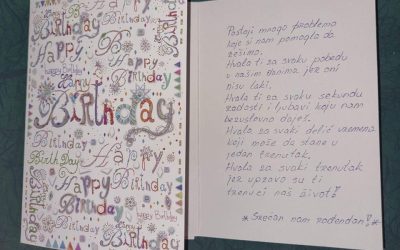 Birthday
Happy
Birthday
Happy
Birthday
Happy
Birthday
Happy
Birthday
Happy
Birthday
Happy
Birthday
Postoji mnogo problema
koje si nam pomogla da
rešimo.
Hvala ti za svaku pobedu
u našim danima, jer oni
nisu laki.
Hvala ti za svaku sekundu
radosti i ljubavi koju nam
bezuslovno daješ.
Hvala za svaki delić vremena
koji može da stane u
jedan trenutak.
Hvala za svaki trenutak
jer upravo su ti
trenuci naš život!
* Srećan nam rođendan! *